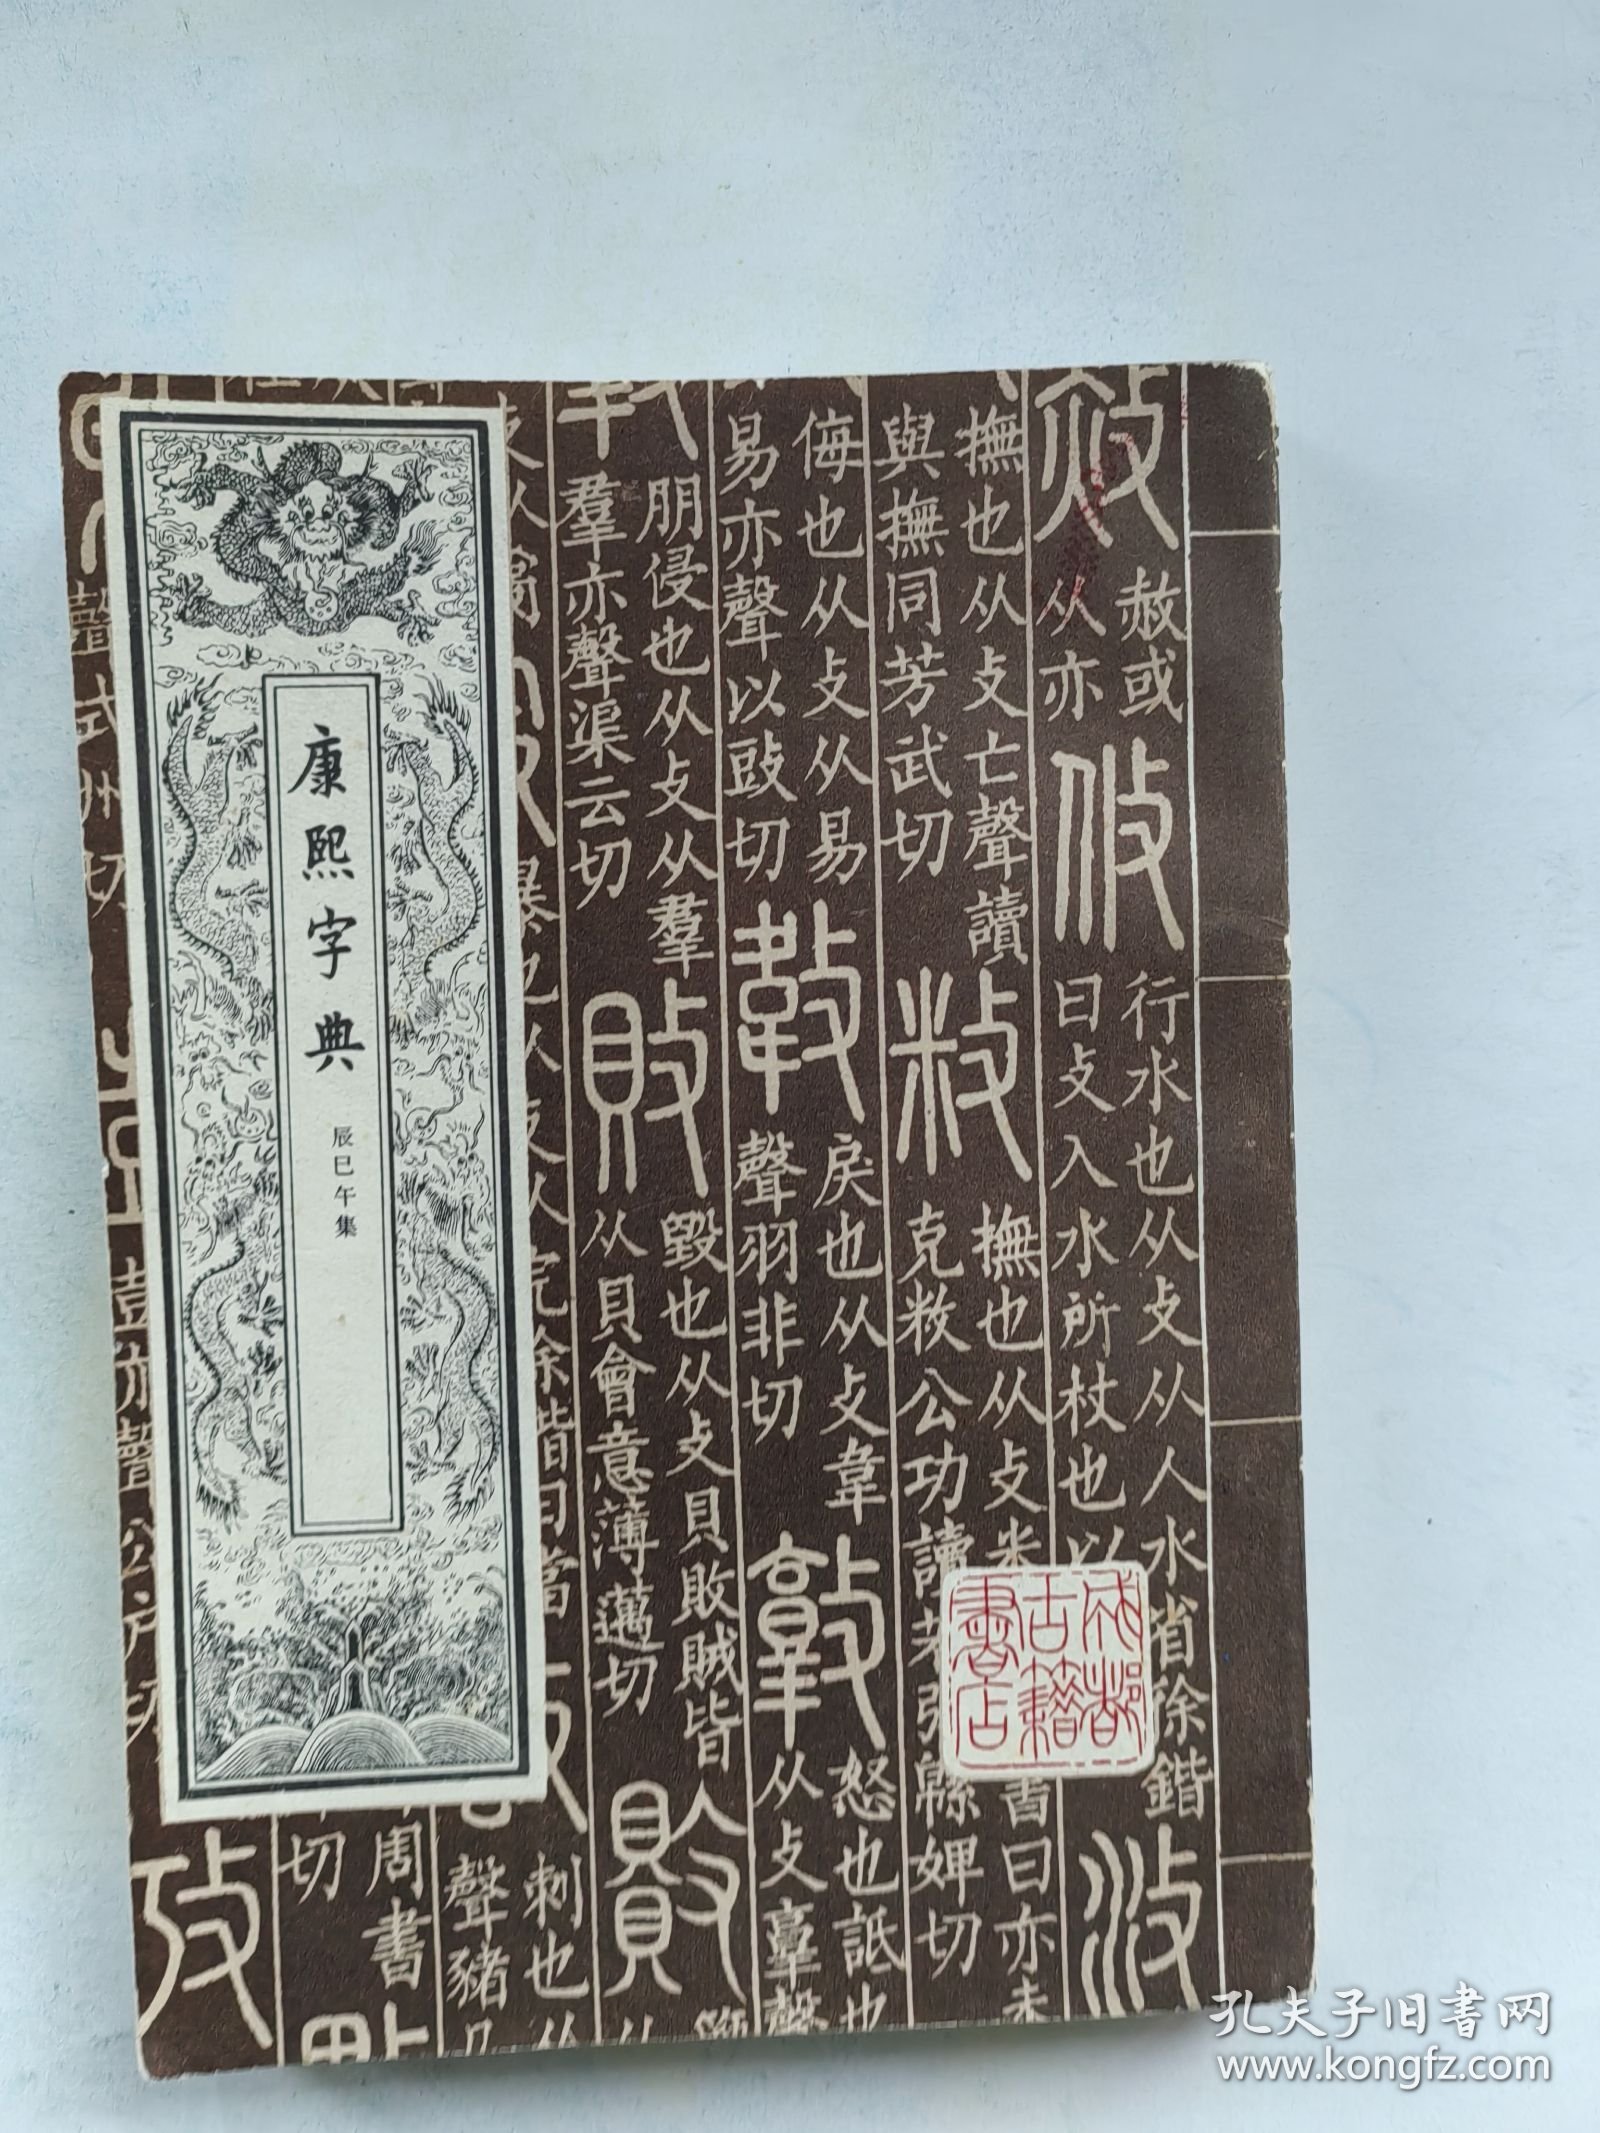 康熙字典
辰巳午集
赦或
从亦
行水也从攴从人水省徐鍇
曰攴入水所杖也以
撫也从攴亡聲讀
與撫同芳武切
撫也从攴米
書曰亦未
克敉公功讀若弭緜婢切
侮也从攴从易
易亦聲以豉切
戾也从攴韋
聲羽非切
怒也詆也
从攴𦎫聲
朋侵也从攴从羣
羣亦聲渠云切
毀也从攴貝敗賊皆
从貝會意薄邁切
刺也从
聲豬几
周書
切
成都
古籍
書店
孔夫子旧书网
www.kongfz.com